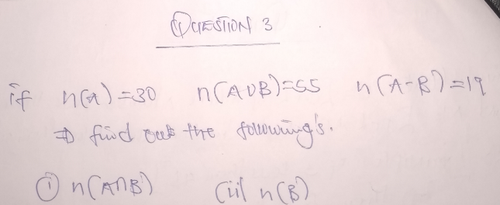 QUESTION 3
if n(A)=30 n(AUB)=55 n(A-B)=19
⇒ find out the following's.
(i) n(A∩B) (ii) n(B)